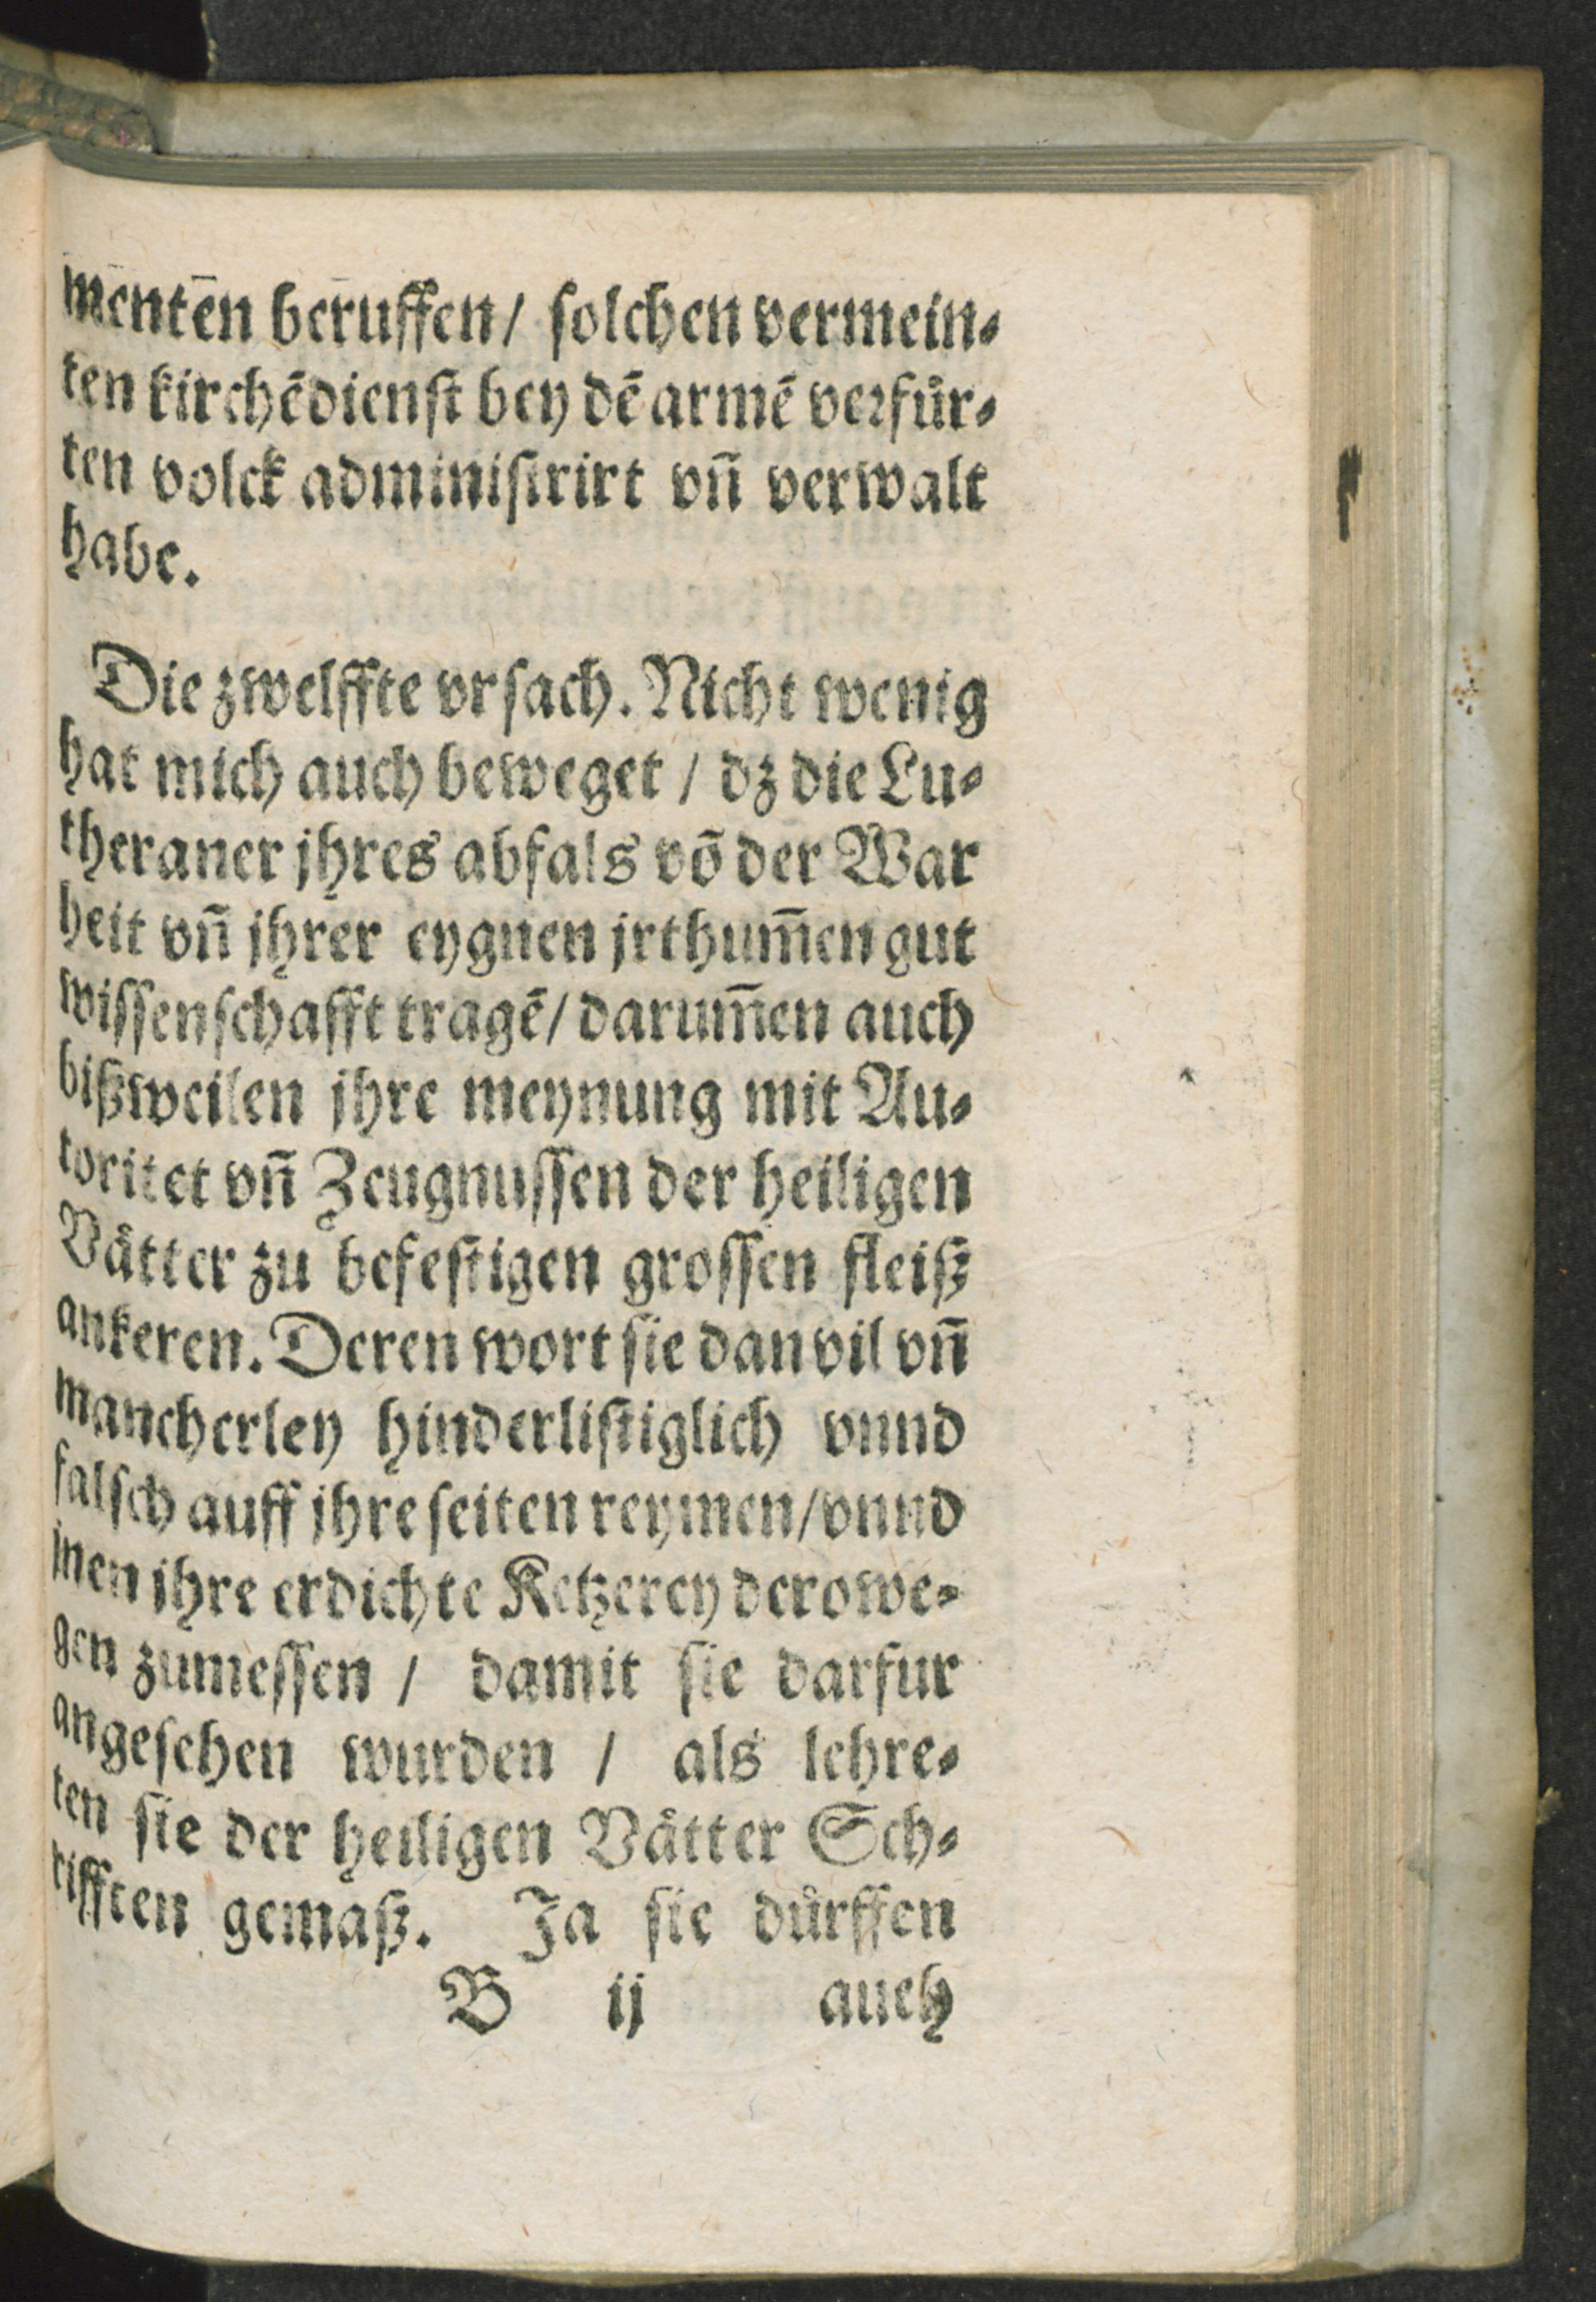 menten beruffen / solchen vermein⸗
ten kirchē dienst bey dē armē verfůr⸗
ten volck administrirt vn̄ verwalt
habe.
Die zwelffte vrsach. Nicht wenig
hat mich auch beweget / dz die Lu⸗
theraner jhres abfals vō der War
heit vn̄ jhrer eygnen jrthum̄en gut
wissenschafft tragē / darum̄en auch
bißweilen jhre meynung mit Au⸗
toritet vn̄ Zeugnussen der heiligen
Våtter zu befestigen grossen fleiß
ankeren. Deren wort sie dan vil vn̄
mancherley hinderlistiglich vnnd
falsch auff jhre seiten reymen / vnnd
jnen jhre erdichte Ketzerey derowe⸗
gen zumessen / damit sie darfur
angesehen wurden / als lehre⸗
ten sie der heiligen Våtter Sch⸗
rifften gemaß. Ja sie důrffen
B ij auch